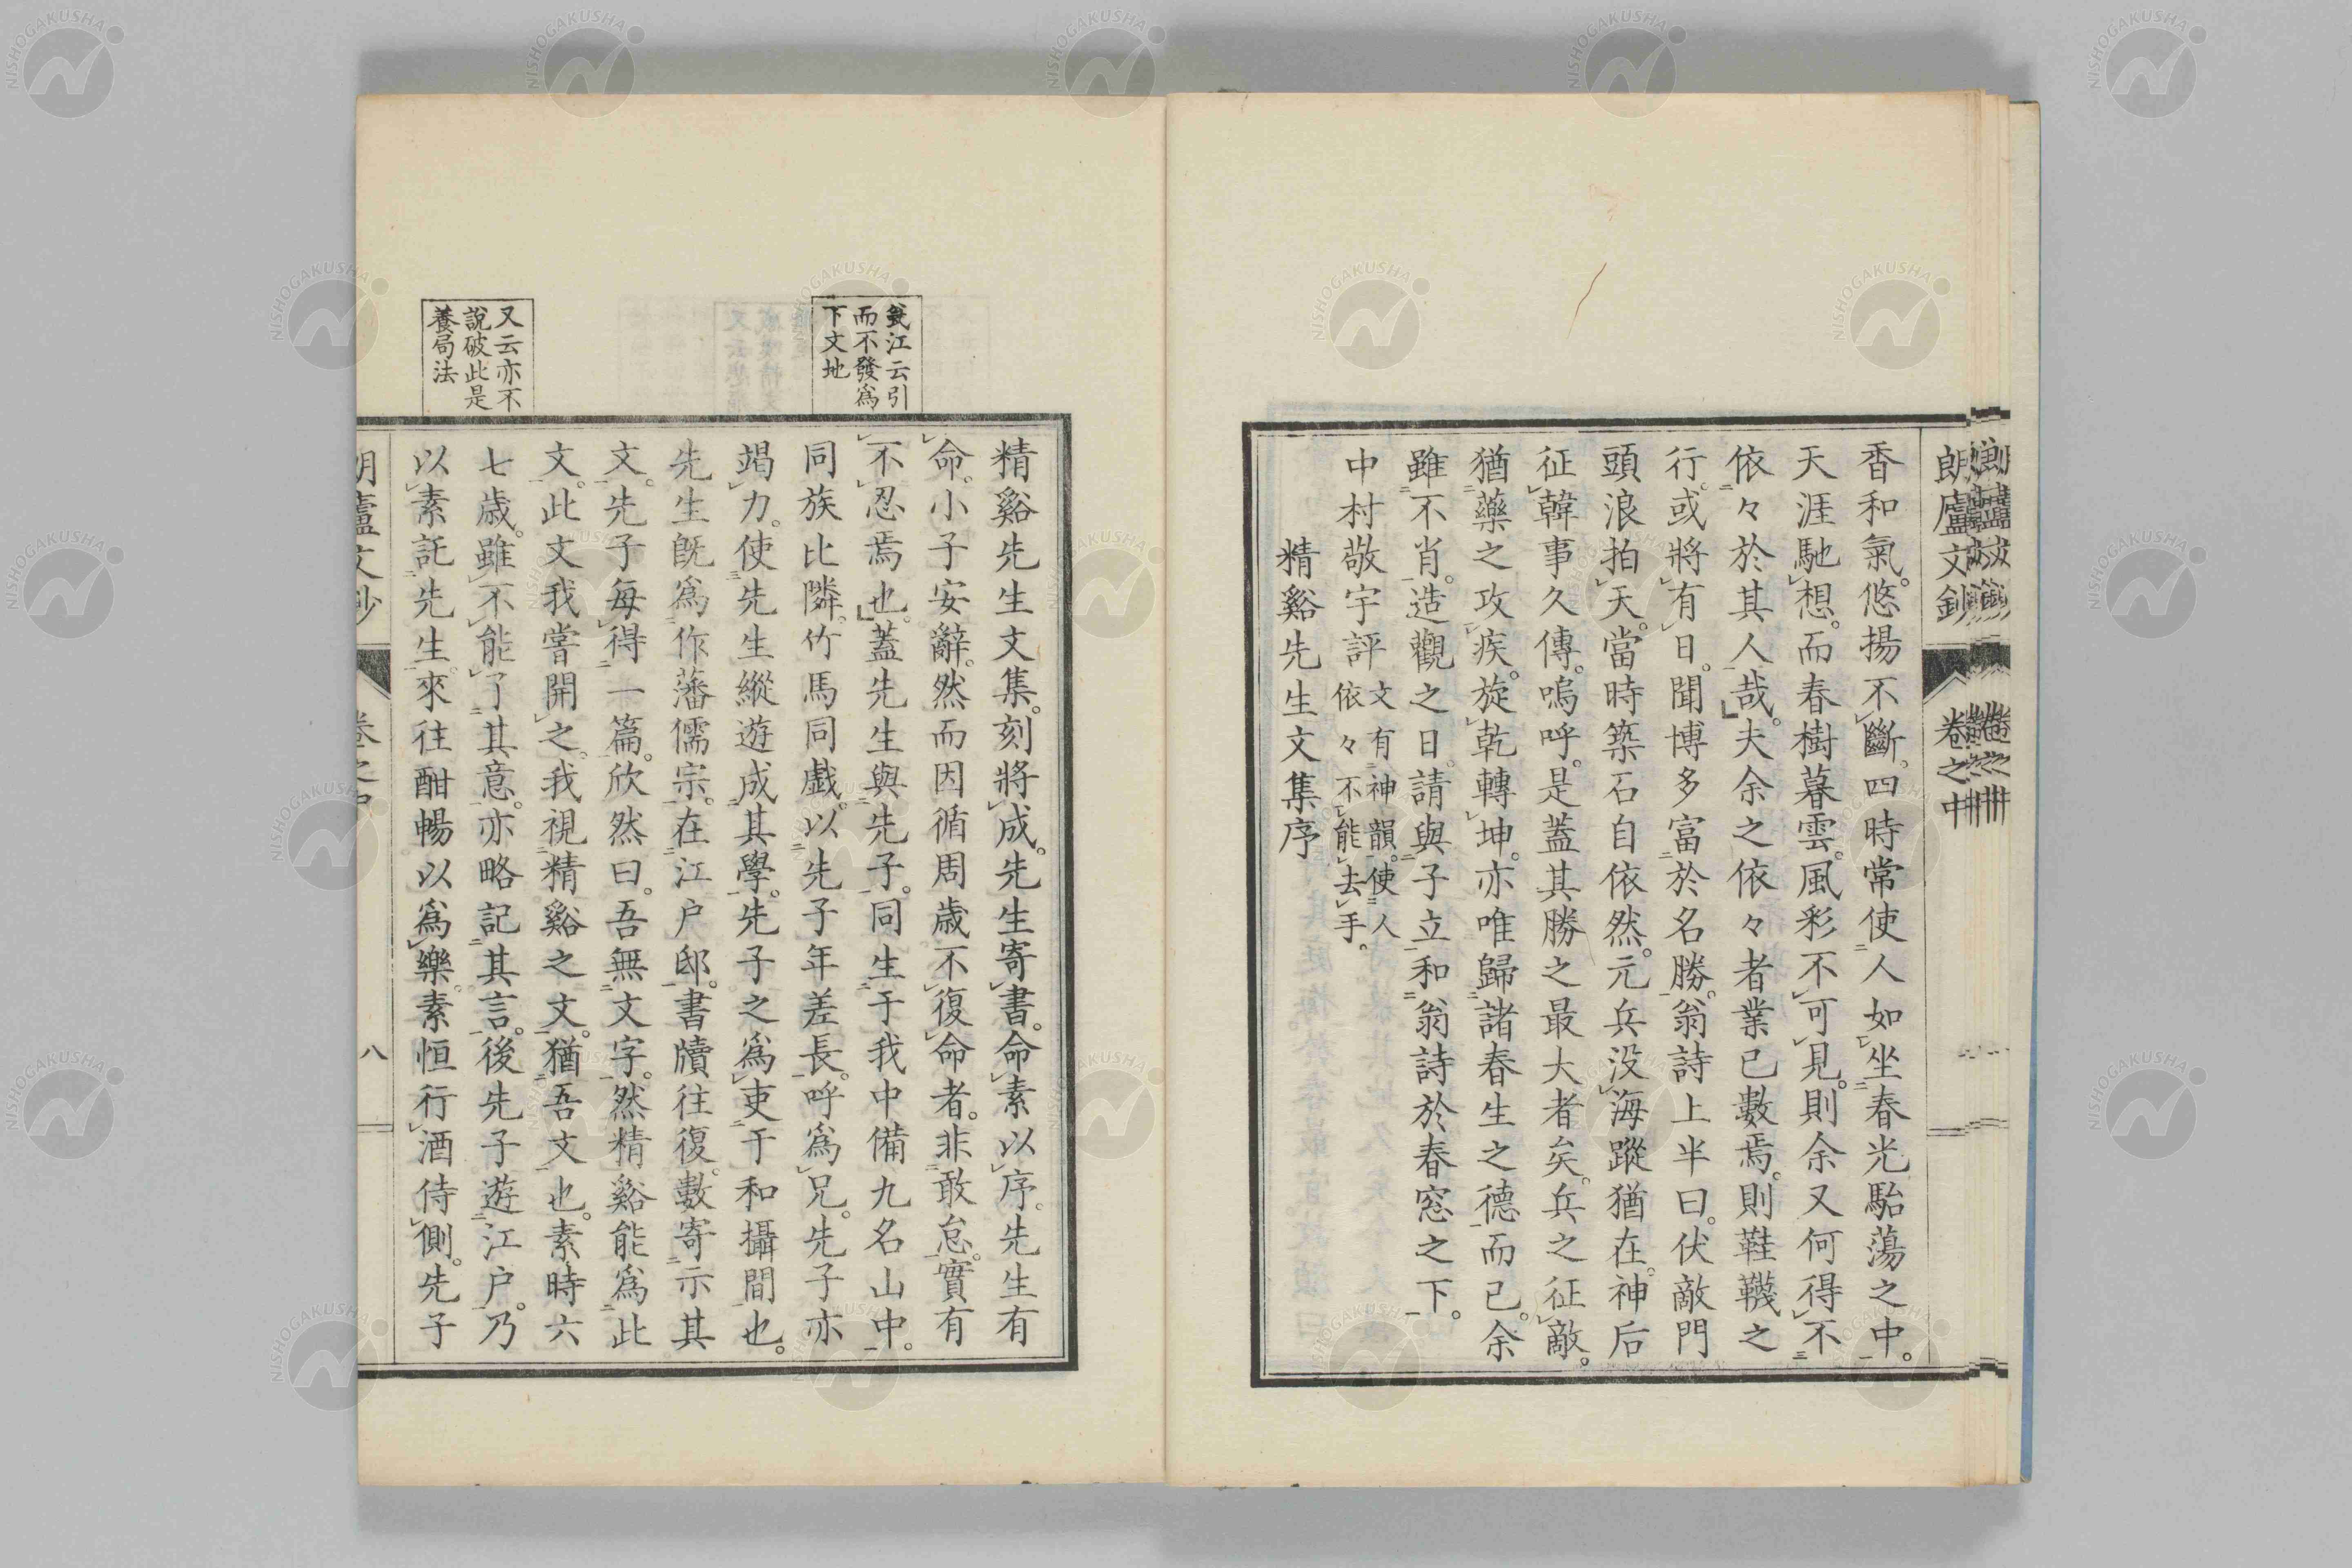 朗廬文鈔 卷之中
香和氣。悠揚不斷。四時常使人如坐春光駘蕩之中。
天涯馳想。而春樹暮雲。風彩不可見。則余又何得不
依々於其人哉。夫余之依々者業已數焉。則鞋韈之
行。或將有日。聞博多富於名勝。翁詩上半曰。伏敵門
頭浪拍天。當時築石自依然。元兵没海蹤猶在。神后
征韓事久傳。嗚呼。是蓋其勝之最大者矣。兵之征敵。
猶藥之攻疾。旋乾轉坤。亦唯歸諸春生之德而已。余
雖不肖。造觀之日。請與子立和翁詩於春窓之下。
中村敬宇評 文有神韻。使人
依々不能去手。
精谿先生文集序
江云引
而不發爲
下文地
又云亦不
説破此是
養局法
精谿先生文集。刻將成。先生寄書。命素以序。先生有
命。小子安辭。然而因循周歲。不復命者。非敢怠。實有
不忍焉也。蓋先生與先子。同生于我中備九名山中。
同族比隣。竹馬同戯。以先子年差長。呼爲兄。先子亦
竭力。使先生縱遊成其學。先子之爲吏于和攝間也。
先生旣爲作藩儒宗。在江户邸。書牘往復。數寄示其
文。先子每得一篇。欣然曰。吾無文字。然精谿能爲此
文。此文我嘗開之。我視精谿之文。猶吾文也。素時六
七歲。雖不能了其意。亦略記其言。後先子遊江户。乃
以素託先生。來往酣暢以爲樂。素恒行酒侍側。先子
朗廬文鈔 卷之中 八
NISHOGAKUSHA